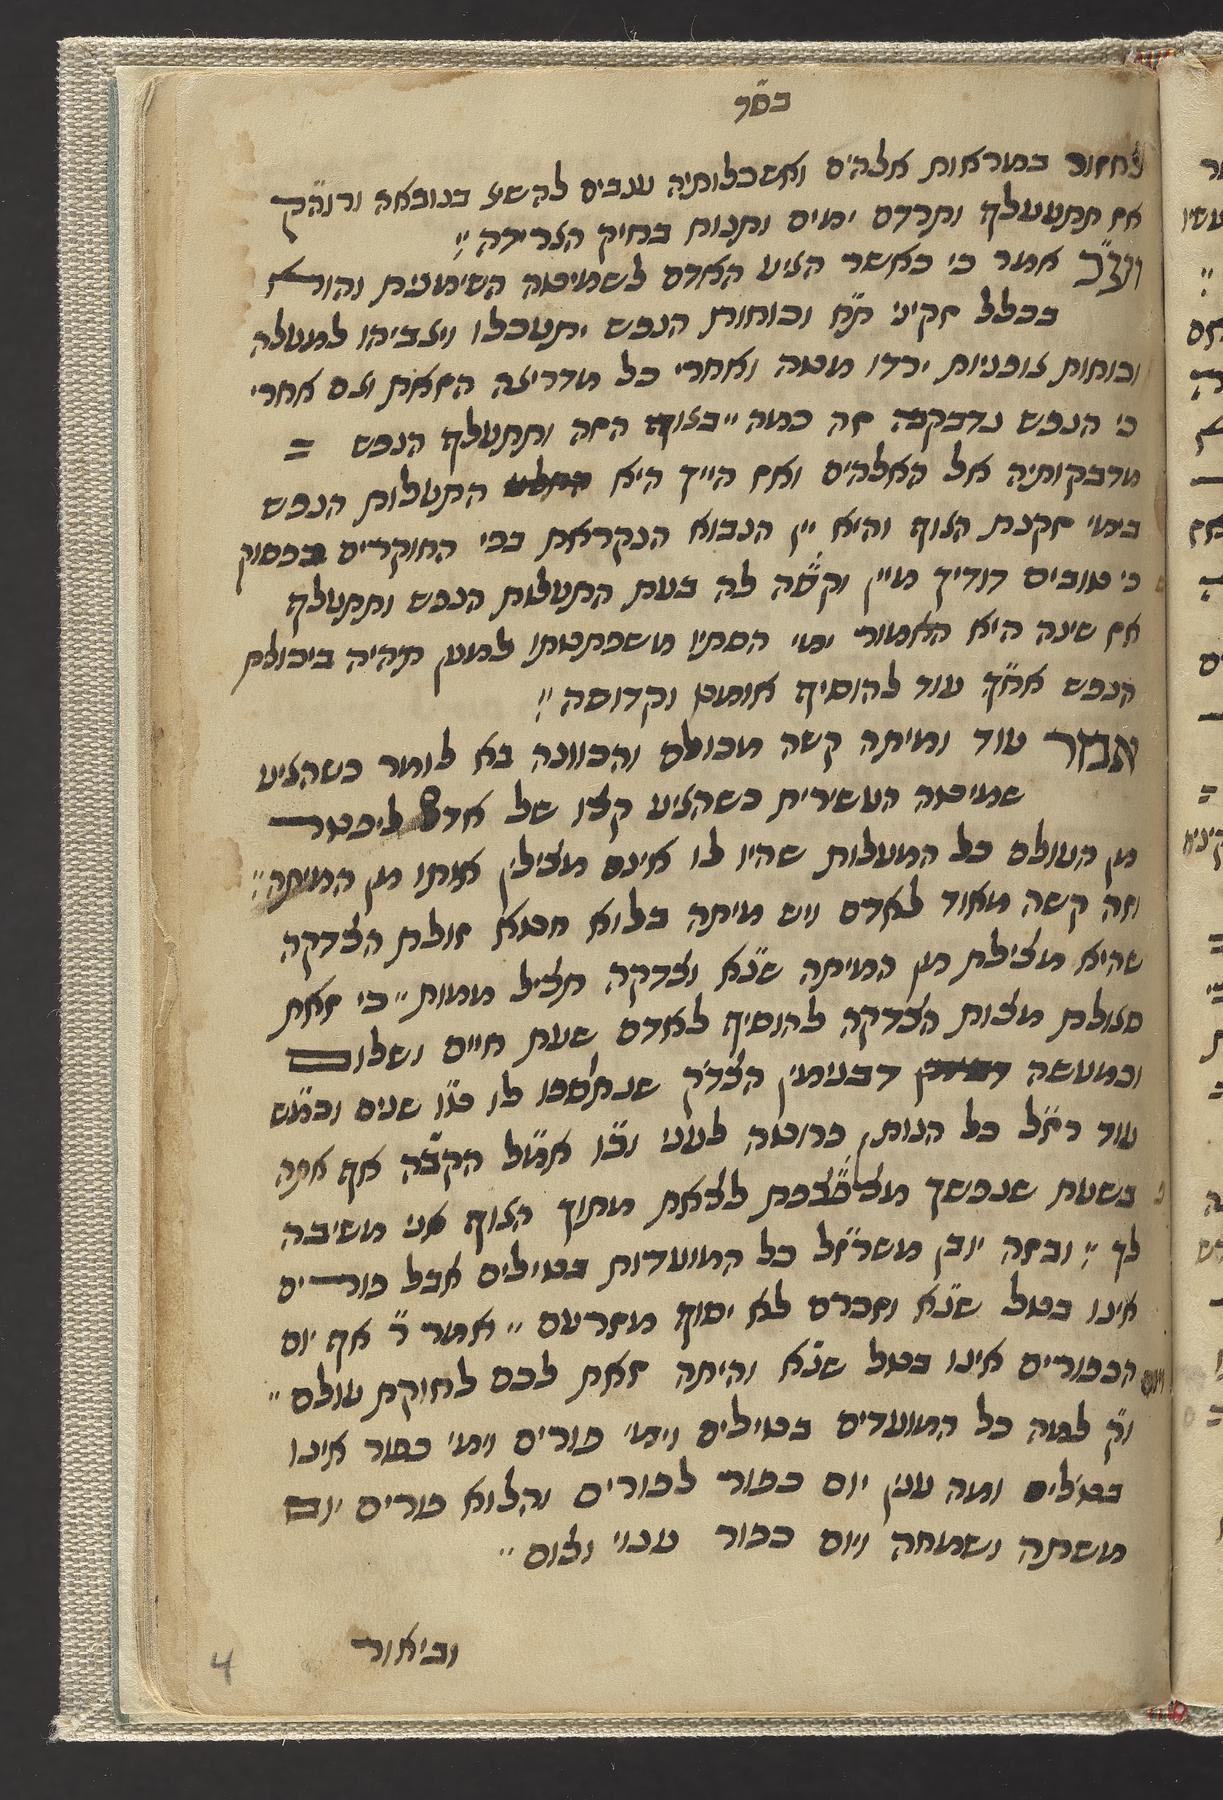 בסד
לחזור במראות אלהים ואשכלותיה ענבים להשיג בנבואה ורוה״ק
אז תתעלף ותרדם ימים ותנוח בחיק הגרידה״
ועז״כ אמר כי כאשר הגיע האדם לשמיטה השימנית והוא
בכלל זקיני ת״ח וכוחות הנפש יתעכלו ויגביהו למעלה
וכוחות גופניות ירדו מטה ואחרי כל מדריגה הזאת וגם אחרי
כי הנפש נדבקה זה כמה ״בגוף הזה ותתעלף הנפש =
מדבקותיה אל האלהים ואז הייך היא התעלות הנפש
בימי זקנת הגוף והיא יין הנבוא הנקראת בפי החוקרים בפסוק
כי טובים דודיך מיין וקשה לה בעת התעלות הנפש ותתעלף
אז שינה היא האמור ימי הסתיו משפתטתו למען תהיה ביכולת
הנפש אח״כ עוד להוסיף אומט וקדושה״
אמר עוד ומיתה קשה מכולם והכוונה בא לומר כשהגיע
שמיטה העשירית כשהגיע קצו של אדם ליפטר
מן העולם כל המעלות שהיו לו אינם מצילין אותו מן המיתה״
וזה קשה מאוד לאדם ויש מיתה בלוא חטא זולת הצדקה
שהיא מצילת מן המיתה שנא׳ וצדקה תציל ממות״ כי זאת
סגולת מצות הצדקה להוסיף לאדם שעת חיים ושלום
וכמעשה דבנימין הצדק שנתוספו לו ט״ו שנים וכמ״ש
עוד רז״ל כל הנותן פרוטה לעני וכ״ו אמ״ל הקב״ה אף אתה
בשעת שנפשך מצפצפת לצאת מתוך הגוף אני משיבה
לך״ ובזה יובן משרז״ל כל המועדות בטילים אבל פורים
אינו בטל שנא׳ וזכרם לא יסוף מזרעם״ אמר ר׳ אף יום
הכפורים אינו בטל שנא׳ והיתה זאת לכם לחוקת עולם״
וק׳ למה כל המועדים בטילים וימי פורים וימי כפור אינו
בטלים ומה ענין יום כפור לפורים והלוא פורים יום
משתה ושמחה ויום כפור ענוי וצום״
וביאור
4